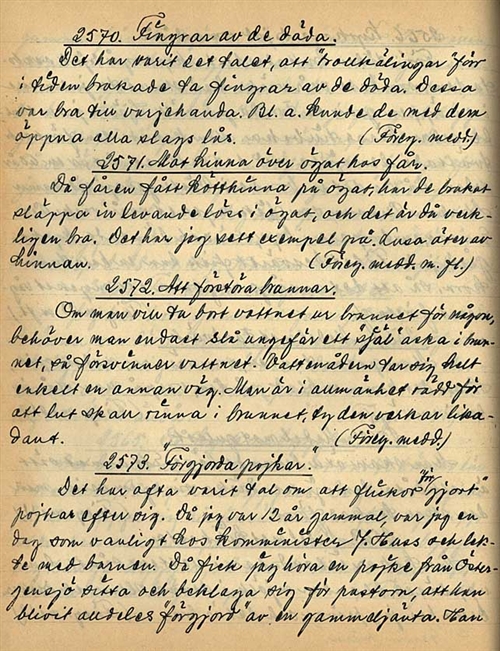 2570. Fingrar av de döda.
Det har varit det talet, att "trollkälingar" förr
i tiden brukade ta fingrar av de döda. Dessa
var bra till varjehanda. Bl. a. kunde de med dem
öppna alla slags lås. (Föreg. medd.)
2571. Mot hinna över ögat hos får.
Då fåren fått kötthinna på ögat, har de brukat
släppa in levande löss i ögat, och det är då verk-
ligen bra. Det har jag sett exempel på. Lusa äter av
hinnan. (Föreg. medd. m. fl.)
2572. Att förstöra brunnar.
Om man vill ta bort vattnet ur brunnet för någon,
behöver man endast slå ungefär ett "själ" aska i brun-
net, så försvinner vattnet. Vattenådern tar sig helt
enkelt en annan väg. Man är i allmänhet rädd för
att lut skall rinna i brunnet, ty den verkar lika-
dant. (Föreg. medd.)
2573. "Förgjorda pojkar."
Det har ofta varit tal om att flickor "förgjort"
pojkar efter sig. Då jag var 12 år gammal, var jag en
dag som vanligt hos komminister J. Huss och lek-
te med barnen. Då fick jag höra en pojke från Öster-
gensjö sitta och beklaga sig för pastorn, att han
blivit alldeles "förgjord" av en gammeljänta. Han